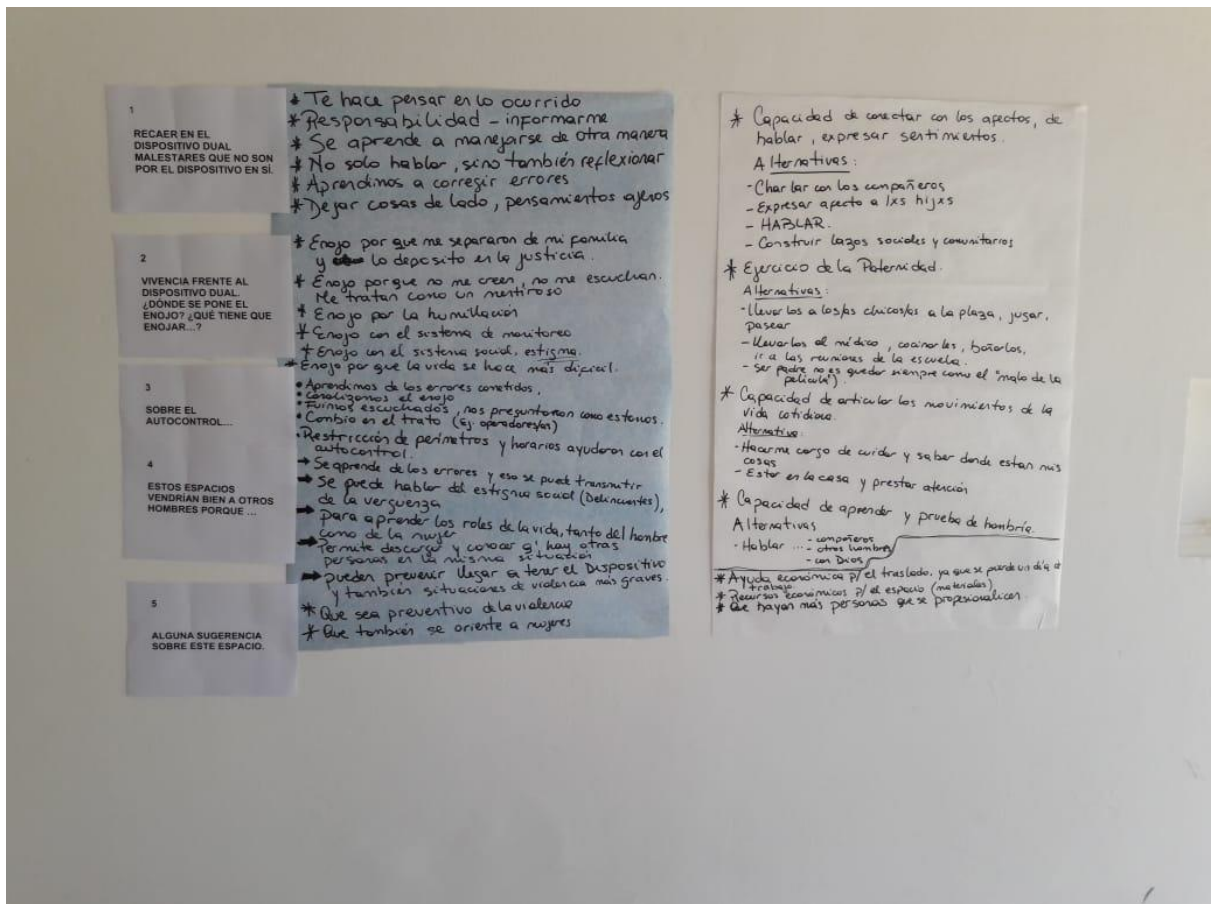 1
RECAER EN EL
DISPOSITIVO DUAL
MALESTARES QUE NO SON
POR EL DISPOSITIVO EN SÍ.
* Te hace pensar en lo ocurrido
* Responsabilidad - informarme
* Se aprende a manejarse de otra manera
* No solo hablar, sino también reflexionar
* Aprendimos a corregir errores
* Dejar cosas de lado, pensamientos ajenos
2
VIVENCIA FRENTE AL
DISPOSITIVO DUAL.
¿DÓNDE SE PONE EL
ENOJO? ¿QUÉ TIENE QUE
ENOJAR...?
* Enojo por que me separaron de mi familia
y lo deposito en la justicia.
* Enojo porque no me creen, no me escuchan.
Me tratan como un mentiroso
* Enojo por la humillación
* Enojo con el sistema de monitoreo
* Enojo con el sistema social, estigma.
* Enojo por que la vida se hace más dificil.
3
SOBRE EL
AUTOCONTROL...
• Aprendimos de los errores cometidos,
• Canalizamos el enojo
• Fuimos escuchados, nos preguntaron como estamos.
• Cambio en el trato (ej. operadores/as)
• Restricción de perímetros y horarios ayudaron con el
autocontrol.
4
ESTOS ESPACIOS
VENDRÍAN BIEN A OTROS
HOMBRES PORQUE ...
→ Se aprende de los errores y eso se puede transmitir
→ Se puede hablar del estigma social (Delincuentes),
de la verguenza
→ para aprender los roles de la vida, tanto del hombre
como de la mujer
→ Permite descargar y conocer q' hay otras
personas en la misma situación
→ pueden prevenir llegar a tener el Dispositivo
y también situaciones de violencia más graves.
5
ALGUNA SUGERENCIA
SOBRE ESTE ESPACIO.
* Que sea preventivo de la violencia
* Que también se oriente a mujeres
* Capacidad de conectar con los afectos, de
hablar, expresar sentimientos.
Alternativas:
- Charlar con los compañeros
- Expresar afecto a lxs hijxs
- HABLAR.
- Construir lazos sociales y comunitarios
* Ejercicio de la Paternidad.
Alternativas:
- llevarlos a los/as chicos/as a la plaza, jugar,
pasear
- llevarlos al médico, cocinarles, bañarlos,
ir a las reuniones de la escuela.
- Ser padre no es quedar siempre como el "malo de la
película").
* Capacidad de articular los movimientos de la
vida cotidiana.
Alternativa:
- Hacerme cargo de cuidar y saber donde estan mis
cosas
- Estar en la casa y prestar atención
* Capacidad de aprender y prueba de hombría.
Alternativas
- Hablar ... - compañeros
- otros hombres
- con Dios
* Ayuda económica p/ el traslado, ya que se pierde un día de
trabajo.
* Recursos económicos p/ el espacio (materiales)
* Que hayan más personas que se profesionalicen.